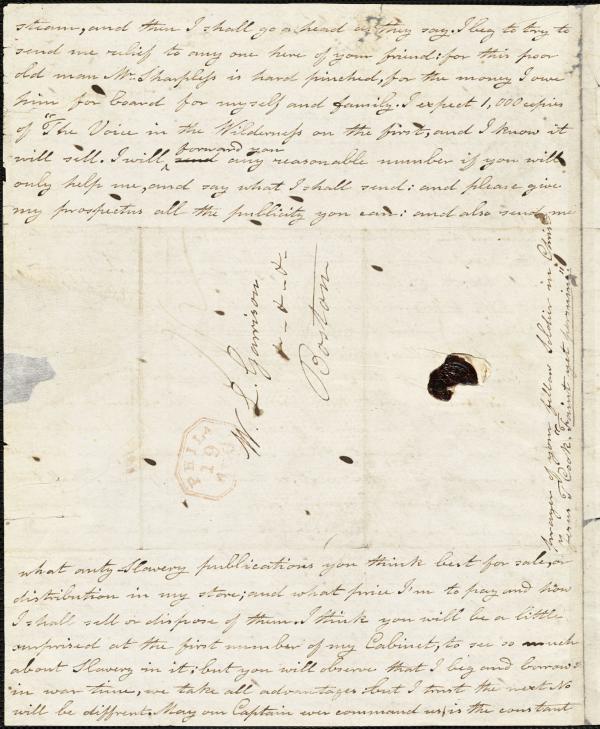 steam, and then I shall go a head as they say. I beg to try to
send me relief to any one here of your friend: for this poor
old man Mr. Sharpless is hard pinched, for the money I owe
him for board for myself and family. I expect 1,000 copies
of "The Voice in the Wilderness on the first, and I know it
will sell. I will forward you send any reasonable number if you will
only help me, and say what I shall send: and please give
my prospectus all the publicity you can: and also send me
W. L. Garrison
Boston
PHILA
19
what anty-Slavery publications you think best for sale, or
distribution in my store; and what price I'm to pay and how
I shall sell or dispose of them. I think you will be a little
surprised at the first number of my Cabinet, to see so much
about Slavery in it: but you will observe that I beg and borrow:
in war time, we take all advantages: but I trust the next No
will be diffrent. May our Captain ever command us, is the constant
prayer of your fellow Soldier in Christ
Cook. "Faint yet